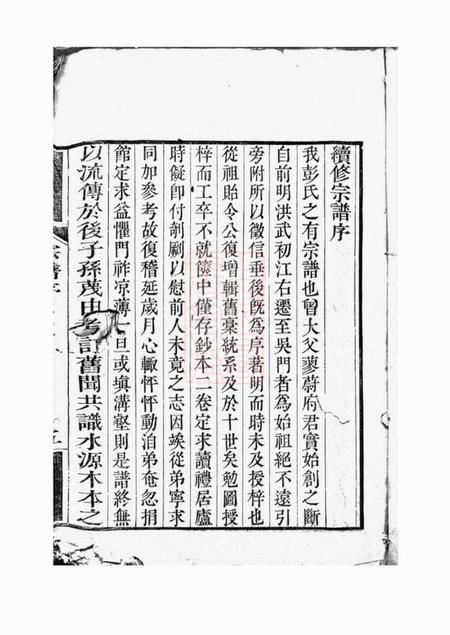 續修宗譜序
我彭氏之有宗譜也曾大父蓼蔚府君實始創之斷
自前明洪武初江右遷至吳門者為始祖絕不遠引
旁附所以徵信垂後旣為序著明而時未及授梓也
從祖貽令公復增輯舊稾統系及於十世矣勉圖授
梓而工卒不就篋中僅存鈔本二卷定求讀禮居廬
時儗即付剞劂以慰前人未竟之志因竢從弟寧求
同加參考故復稽延歲月心輙怦怦動洎弟奄忽捐
館定求益懼門祚凉薄一旦或塡溝壑則是譜終無
以流傳於後子孫茂由考訂舊聞共識水源木本之
宗譜序